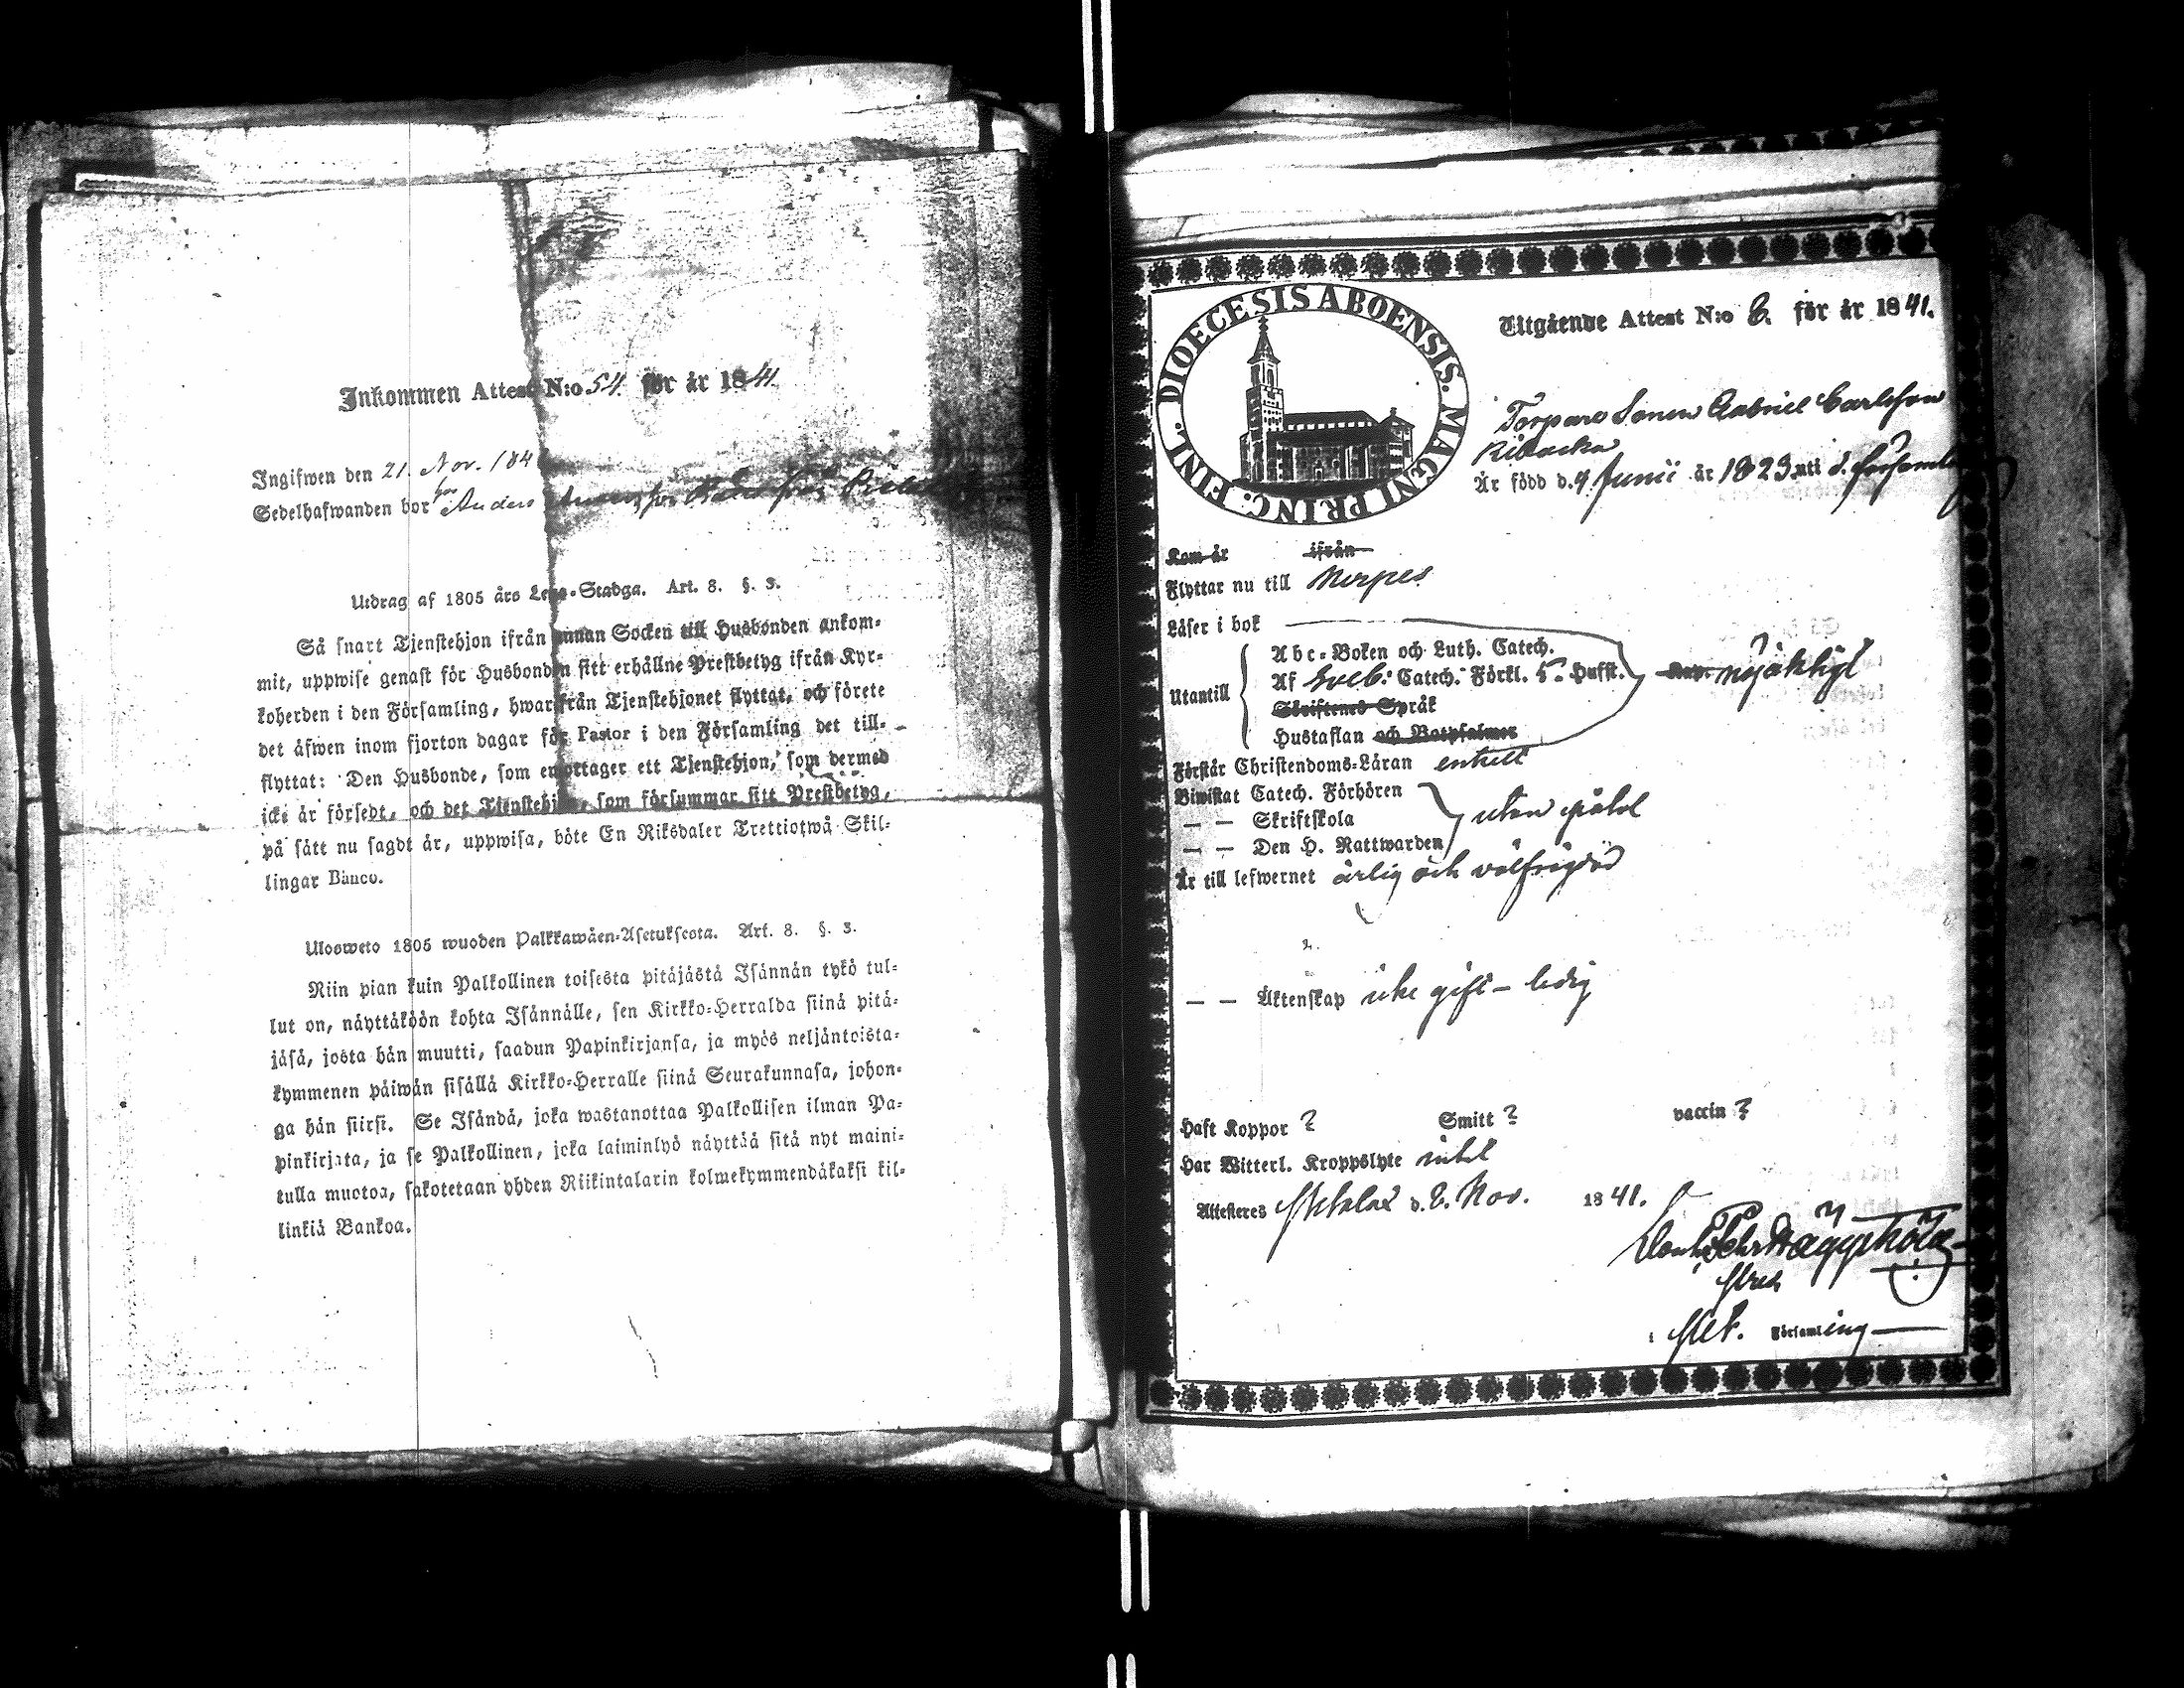 Inkommen Attest N:o 54. för år 1841.
Ingifwen den 21. Nov. 184
Sedelhafwanden bor hos Anders
Utdrag af 1805 års Lego-Stadga. Art. 8. §. 3.
Så snart Tjenstehjon ifrån annan Socken till Husbonden ankom-
mit, uppwise genast för Husbonden sitt erhållne Prestbetyg ifrån Kyr-
koherden i den Församling, hwarifrån Tjenstehjonet flyttat, och förete
det äfwen inom fjorton dagar för Pastor i den Församling det till-
flyttat: Den Husbonde, som emottager ett Tjenstehjon, som dermed
icke är försedt, och det Tjenstehjon, som försummar sitt Prestbetyg,
på sätt nu sagdt är, uppwisa, böte En Riksdaler Trettiotwå Skil-
lingar Banco.
Ulosweto 1805 wuoden Palkkawäen-Asetuksesta. Art. 8. §. 3.
Niin pian kuin Palkollinen toisesta pitäjästä Isännän tykö tul-
lut on, näyttäköön kohta Isännälle, sen Kirkko-Herralda siinä pitä-
jäsä, josta hän muutti, saadun Papinkirjansa, ja myös neljäntoista-
kymmenen päiwän sisällä Kirkko-Herralle siinä Seurakunnasa, johon-
ga hän siirsi. Se Isändä, joka wastanottaa Palkollisen ilman Pa-
pinkirjata, ja se Palkollinen, joka laiminlyö näyttää sitä nyt maini-
tulla muotoa, sakotetaan yhden Riikintalarin kolmekymmendäkaksi kil-
linkiä Bankoa.
FINL. DIOECESIS ABOENSIS. MAGNI PRINC.
Utgående Attest N:o 6. för år 1841.
Torpare Sonen Gabriel Carlsson
Ribacka
Är född d. 9 Junii år 1823 uti d. församl
Kom år ifrån
Flyttar nu till Nerpes
Läser i bok
Abc-Boken och Luth. Catech.
Utantill Af Sveb. Catech. Förkl. 5. Hufst. nöjaktigt
Skriftenes Språk
Hustaflan och Botpsalmer
Förstår Christendoms-Läran enkelt
Biwistat Catech. Förhören
— — Skriftskola utan påtal
— — Den H. Nattwarden
Är till lefwernet ärlig och välfrägdad
— — Äktenskap icke gift - ledig
Haft Koppor ? Smitt ? vaccin ?
Har Witterl. Kroppslyte intet
Attesteres d. 6. Nov. 1841.
Häggström
i Församling